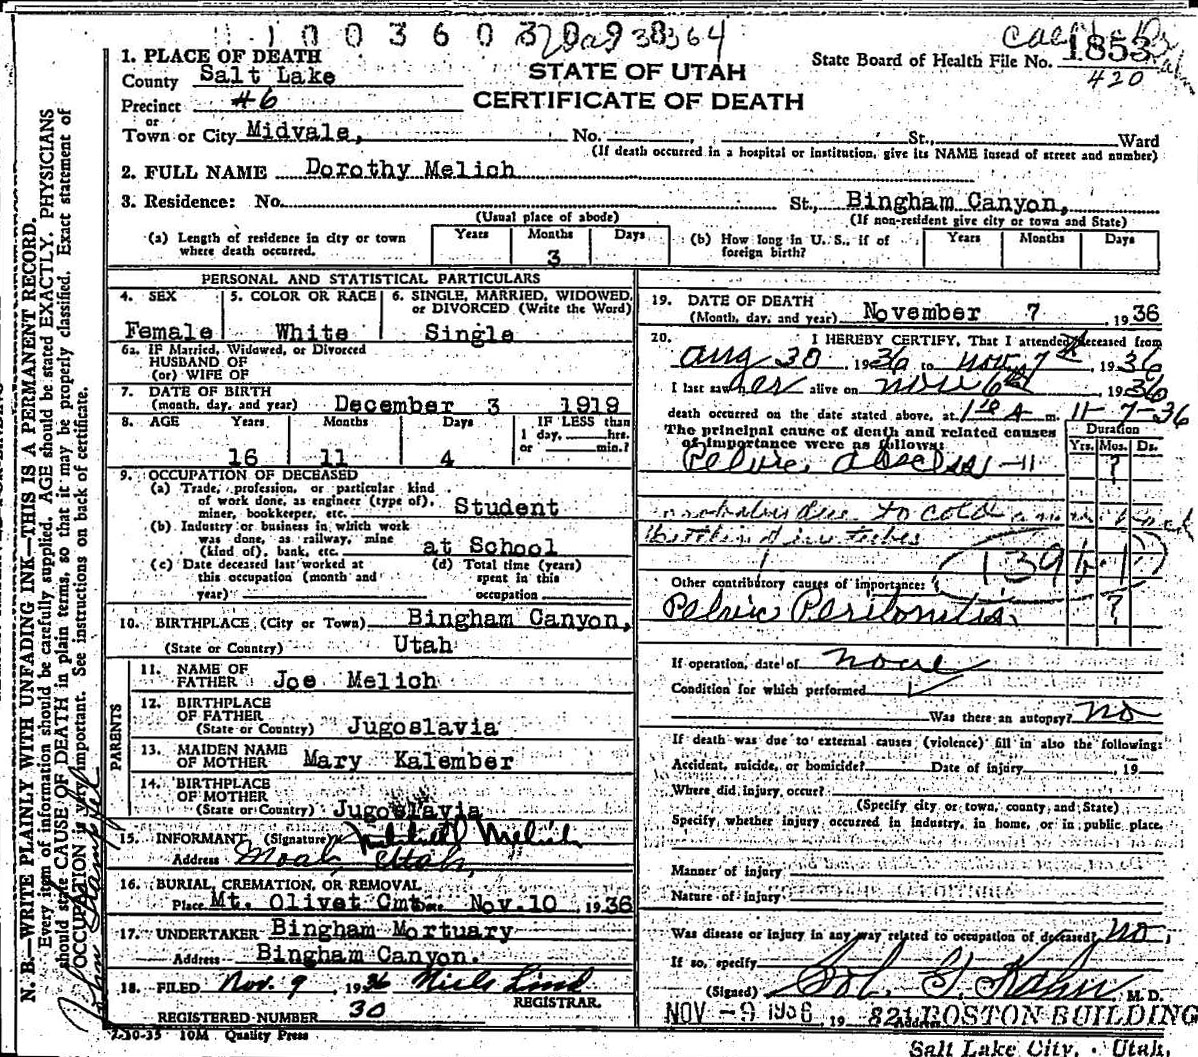 1003603
1. PLACE OF DEATH
County Salt Lake
Precinct #6
or
Town or City Midvale, No. St., Ward
(If death occurred in a hospital or institution, give its NAME insead of street and number)
STATE OF UTAH
CERTIFICATE OF DEATH
State Board of Health File No. 1853
420
2. FULL NAME Dorothy Melich
3. Residence: No. St., Bingham Canyon,
(Usual place of abode) (If non-resident give city or town and State)
(a) Length of residence in city or town where death occurred. Years Months 3 Days
(b) How long in U. S., if of foreign birth? Years Months Days
PERSONAL AND STATISTICAL PARTICULARS
4. SEX Female
5. COLOR OR RACE White
6. SINGLE, MARRIED, WIDOWED, or DIVORCED (Write the Word) Single
6a. IF Married, Widowed, or Divorced
HUSBAND OF
(or) WIFE OF
7. DATE OF BIRTH
(month, day, and year) December 3 1919
8. AGE Years Months Days IF LESS than
1 day, hrs.
or min.?
16 11 4
9. OCCUPATION OF DECEASED
(a) Trade, profession, or particular kind
of work done, as engineer (type of),
miner, bookkeeper, etc. Student
(b) Industry or business in which work
was done, as railway, mine
(kind of), bank, etc. at School
(c) Date deceased last worked at
this occupation (month and
year)
(d) Total time (years)
spent in this
occupation
10. BIRTHPLACE (City or Town) Bingham Canyon,
(State or Country) Utah
PARENTS
11. NAME OF
FATHER Joe Melich
12. BIRTHPLACE
OF FATHER
(State or Country) Jugoslavia
13. MAIDEN NAME
OF MOTHER Mary Kalember
14. BIRTHPLACE
OF MOTHER
(State or Country) Jugoslavia
15. INFORMANT (Signature) Mitchell Melich
Address Moab, Utah,
16. BURIAL, CREMATION, OR REMOVAL
Place Mt. Olivet Cmt. Date Nov. 10, 1936
17. UNDERTAKER Bingham Mortuary
Address Bingham Canyon.
18. FILED Nov. 9 1936 Niels Lind
REGISTRAR.
REGISTERED NUMBER 30
7-30-35 10M Quality Press
19. DATE OF DEATH
(Month, day, and year) November 7, 1936
20. I HEREBY CERTIFY, That I attended deceased from
Aug 30, 1936 to Nov. 7th, 1936
I last saw her alive on Nov 6th, 1936
death occurred on the date stated above, at m. 11-7-36
The principal cause of death and related causes
of importance were as follows:
Duration
Yrs. Mos. Ds.
Pelvic abscess ?
probably due to cold
139 b.1
Other contributory causes of importance:
Pelvic Peritonitis. ?
If operation, date of None
Condition for which performed
Was there an autopsy? No
If death was due to external causes (violence) fill in also the following:
Accident, suicide, or homicide? Date of injury, 19
Where did injury occur?
(Specify city or town, county and State)
Specify whether injury occurred in industry, in home, or in public place.
Manner of injury
Nature of injury
Was disease or injury in any way related to occupation of deceased? No,
If so, specify
(Signed) Sol. G. Kahn M. D.
NOV -9 1936, 19 Address 821 BOSTON BUILDING
Salt Lake City, Utah,
N. B.—WRITE PLAINLY WITH UNFADING INK—THIS IS A PERMANENT RECORD.
Every item of information should be carefully supplied. AGE should be stated EXACTLY. PHYSICIANS
should state CAUSE OF DEATH in plain terms, so that it may be properly classified. Exact statement of
OCCUPATION is very important. See instructions on back of certificate.